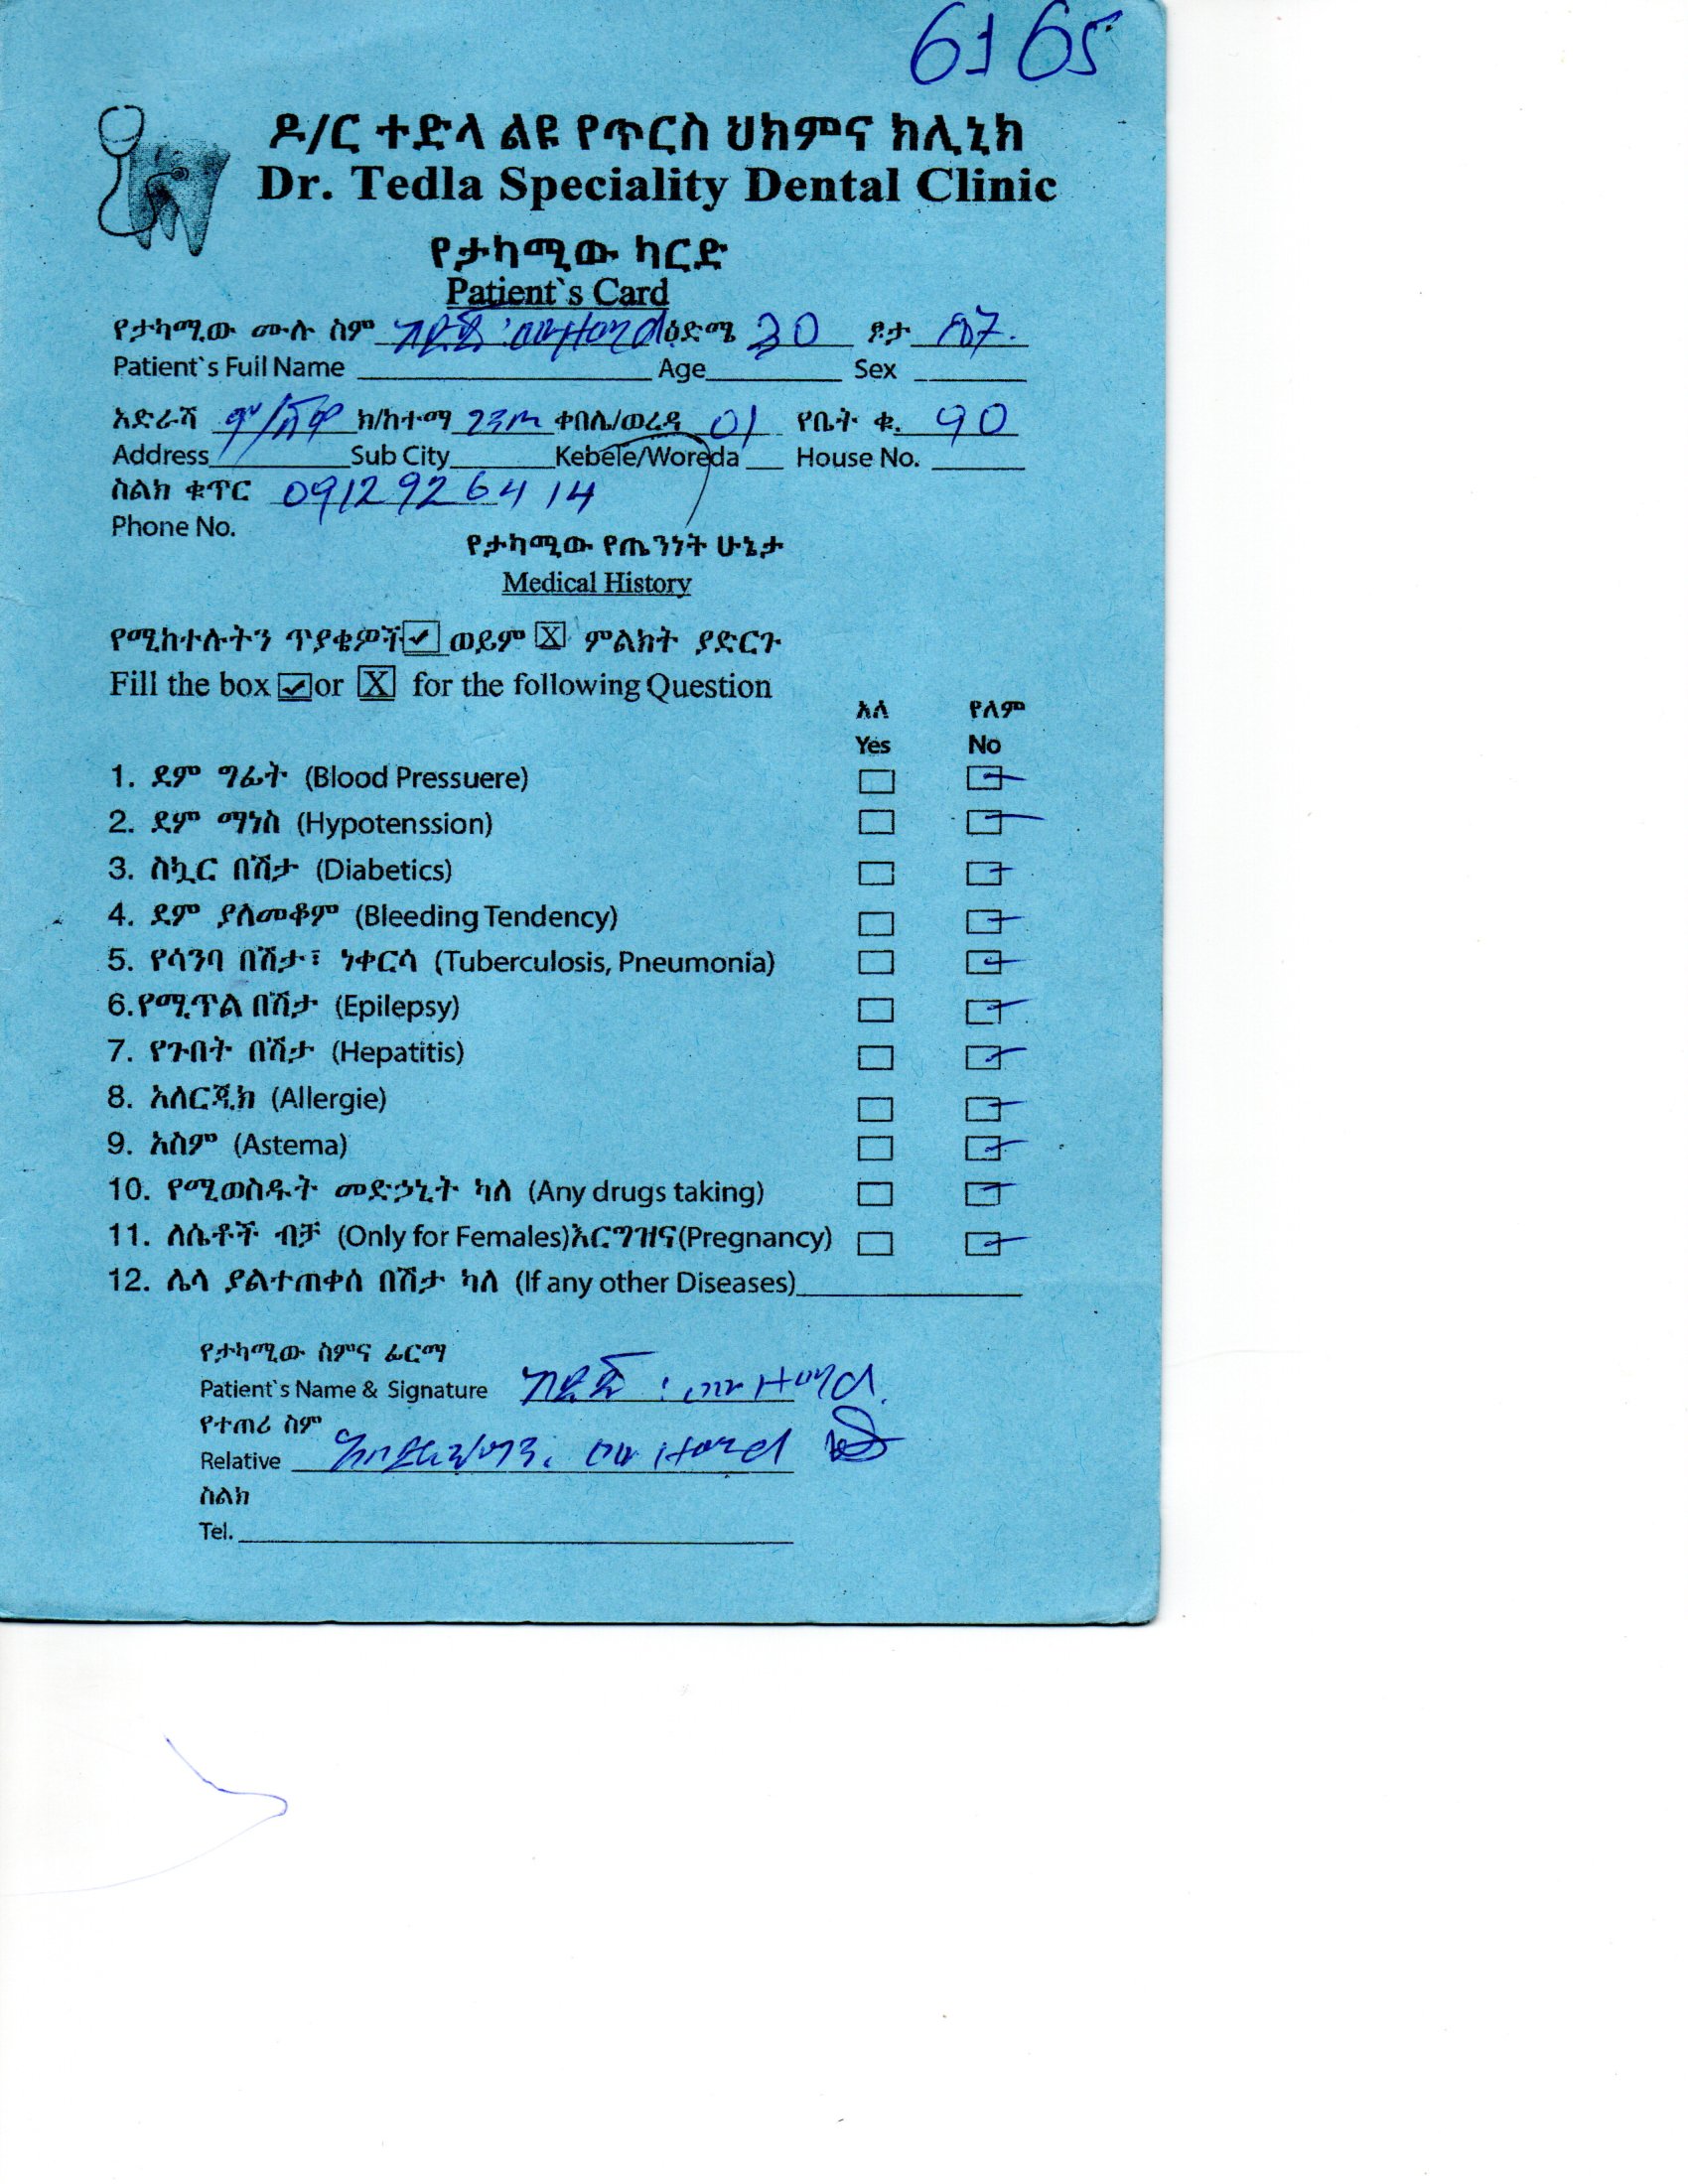 6165
ዶ/ር ተድላ ልዩ የጥርስ ህክምና ክሊኒክ
Dr. Tedla Speciality Dental Clinic
የታካሚው ካርድ
Patient`s Card
የታካሚው ሙሉ ስም ዕድሜ 30 ጾታ
Patient`s Full Name Age Sex
አድራሻ ክ/ከተማ ቀበሌ/ወረዳ 01 የቤት ቁ. 90
Address Sub City Kebele/Woreda House No.
ስልክ ቁጥር 0912926414
Phone No.
የታካሚው የጤንነት ሁኔታ
Medical History
የሚከተሉትን ጥያቄዎች ወይም X ምልክት ያድርጉ
Fill the box or X for the following Question
አለ የለም
Yes No
1. ደም ግፊት (Blood Pressuere)
2. ደም ማነስ (Hypotenssion)
3. ስኳር በሽታ (Diabetics)
4. ደም ያለመቆም (Bleeding Tendency)
5. የሳንባ በሽታ፣ ነቀርሳ (Tuberculosis, Pneumonia)
6.የሚጥል በሽታ (Epilepsy)
7. የጉበት በሽታ (Hepatitis)
8. አለርጂክ (Allergie)
9. አስም (Astema)
10. የሚወስዱት መድኃኒት ካለ (Any drugs taking)
11. ለሴቶች ብቻ (Only for Females)እርግዝና(Pregnancy)
12. ሌላ ያልተጠቀሰ በሽታ ካለ (If any other Diseases)
የታካሚው ስምና ፊርማ
Patient`s Name & Signature
የተጠሪ ስም
Relative
ስልክ
Tel.